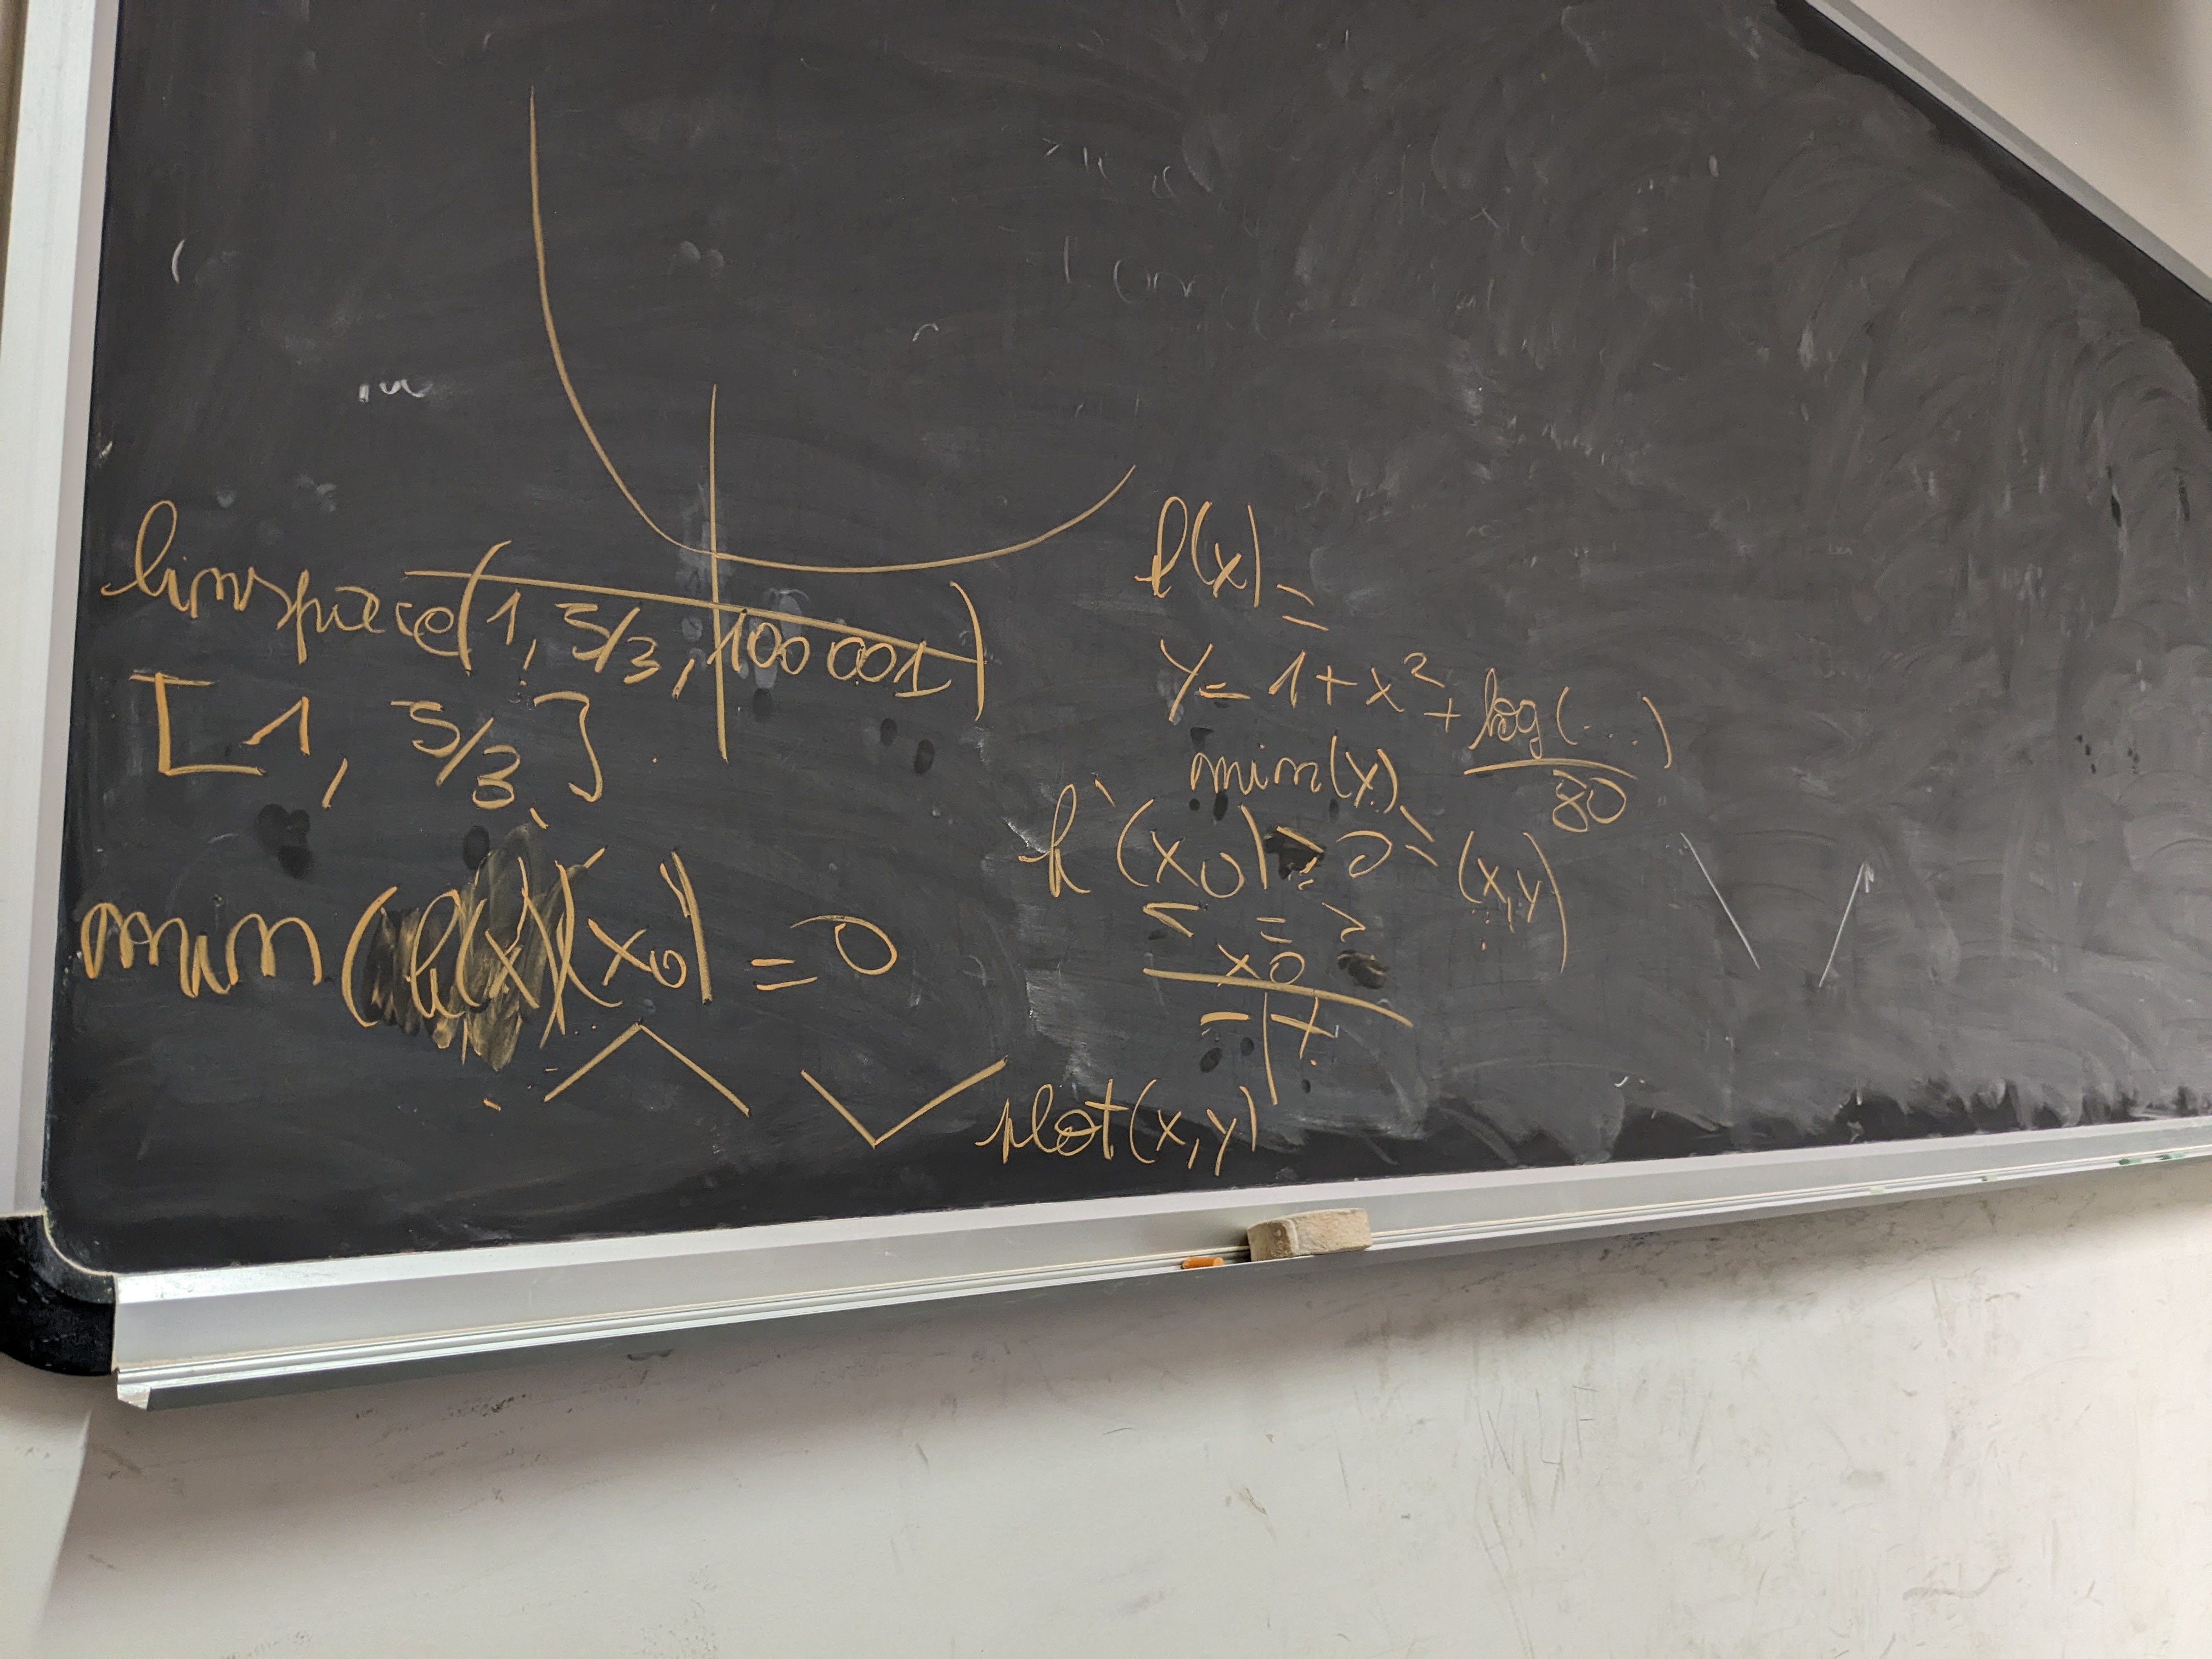 linspace(1, 5/3, 100 001)
[1, 5/3]
min(h(x))(x0) = 0
h(x) =
y = 1 + x² + log(...)/80
min(y)
h'(x0) = 0
(x,y)
< = >
x0
- | +
plot(x,y)